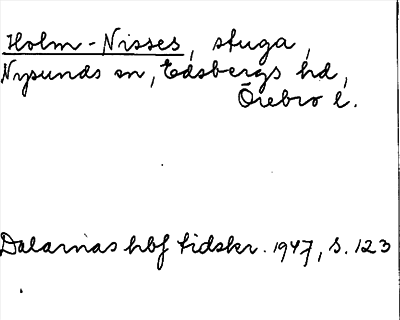 Holm-Nisses, stuga,
Nysunds sn, Edsbergs hd,
Örebro l.
Dalarnas hbf tidskr. 1947, s. 123